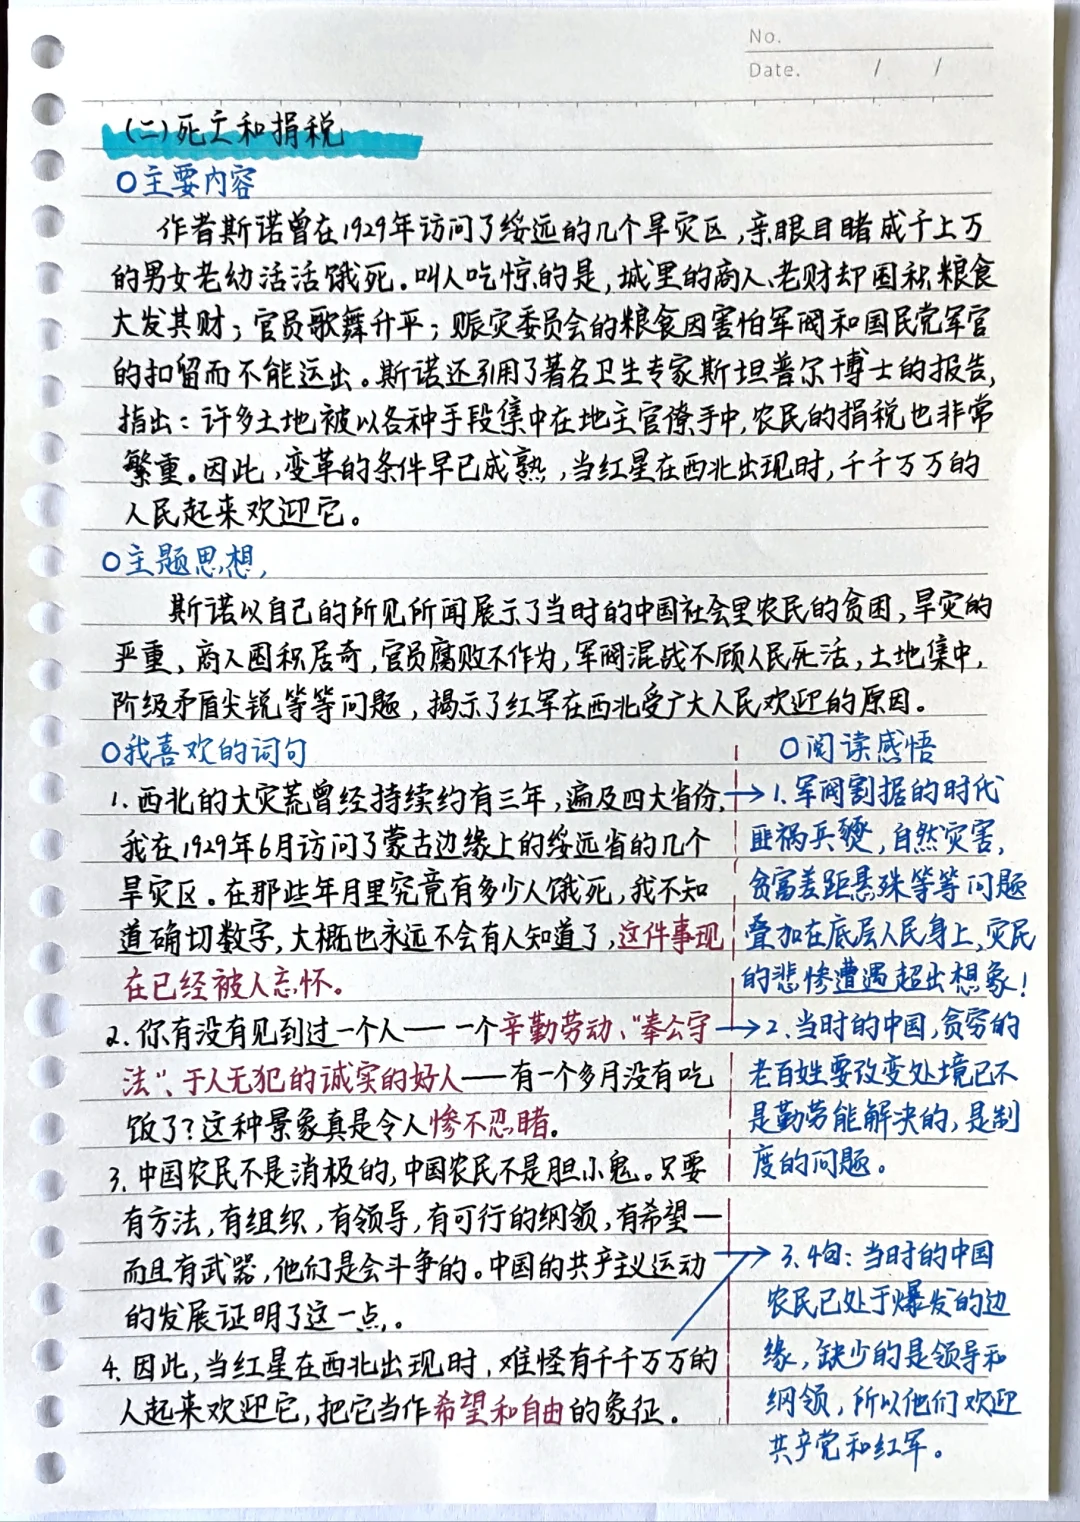 No.
Date. / /
(二)死亡和捐税
○主要内容
作者斯诺曾在1929年访问了绥远的几个旱灾区,亲眼目睹成千上万
的男女老幼活活饿死。叫人吃惊的是,城里的商人、老财却囤积粮食
大发其财;官员歌舞升平;赈灾委员会的粮食因害怕军阀和国民党军官
的扣留而不能运出。斯诺还引用了著名卫生专家斯坦普尔博士的报告,
指出:许多土地被以各种手段集中在地主官僚手中,农民的捐税也非常
繁重。因此,变革的条件早已成熟,当红星在西北出现时,千千万万的
人民起来欢迎它。
○主题思想,
斯诺以自己的所见所闻展示了当时的中国社会里农民的贫困,旱灾的
严重,商人囤积居奇,官员腐败不作为,军阀混战不顾人民死活,土地集中,
阶级矛盾尖锐等等问题,揭示了红军在西北受广大人民欢迎的原因。
○我喜欢的词句
1.西北的大灾荒曾经持续约有三年,遍及四大省份,
我在1929年6月访问了蒙古边缘上的绥远省的几个
旱灾区。在那些年月里究竟有多少人饿死,我不知
道确切数字,大概也永远不会有人知道了,这件事现
在已经被人忘怀。
2.你有没有见到过一个人——一个辛勤劳动、“奉公守
法”、于人无犯的诚实的好人——有一个多月没有吃
饭了?这种景象真是令人惨不忍睹。
3.中国农民不是消极的,中国农民不是胆小鬼。只要
有方法,有组织,有领导,有可行的纲领,有希望—
而且有武器,他们是会斗争的。中国的共产主义运动
的发展证明了这一点。
4.因此,当红星在西北出现时,难怪有千千万万的
人起来欢迎它,把它当作希望和自由的象征。
○阅读感悟
1.军阀割据的时代
匪祸兵燹,自然灾害,
贫富差距悬殊等等问题
叠加在底层人民身上,灾民
的悲惨遭遇超出想象!
2.当时的中国,贫穷的
老百姓要改变处境已不
是勤劳能解决的,是制
度的问题。
3.4句:当时的中国
农民已处于爆发的边
缘,缺少的是领导和
纲领,所以他们欢迎
共产党和红军。